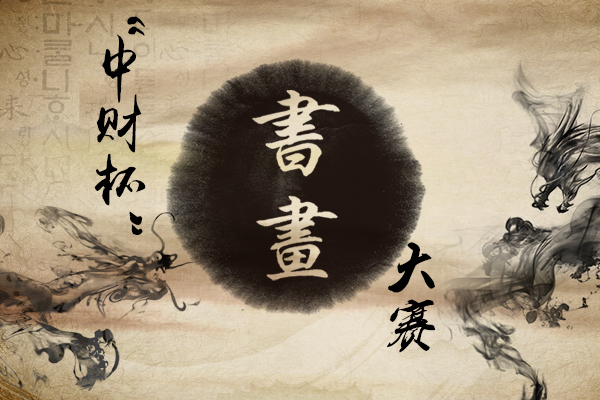 “中财杯”
書畫
大赛